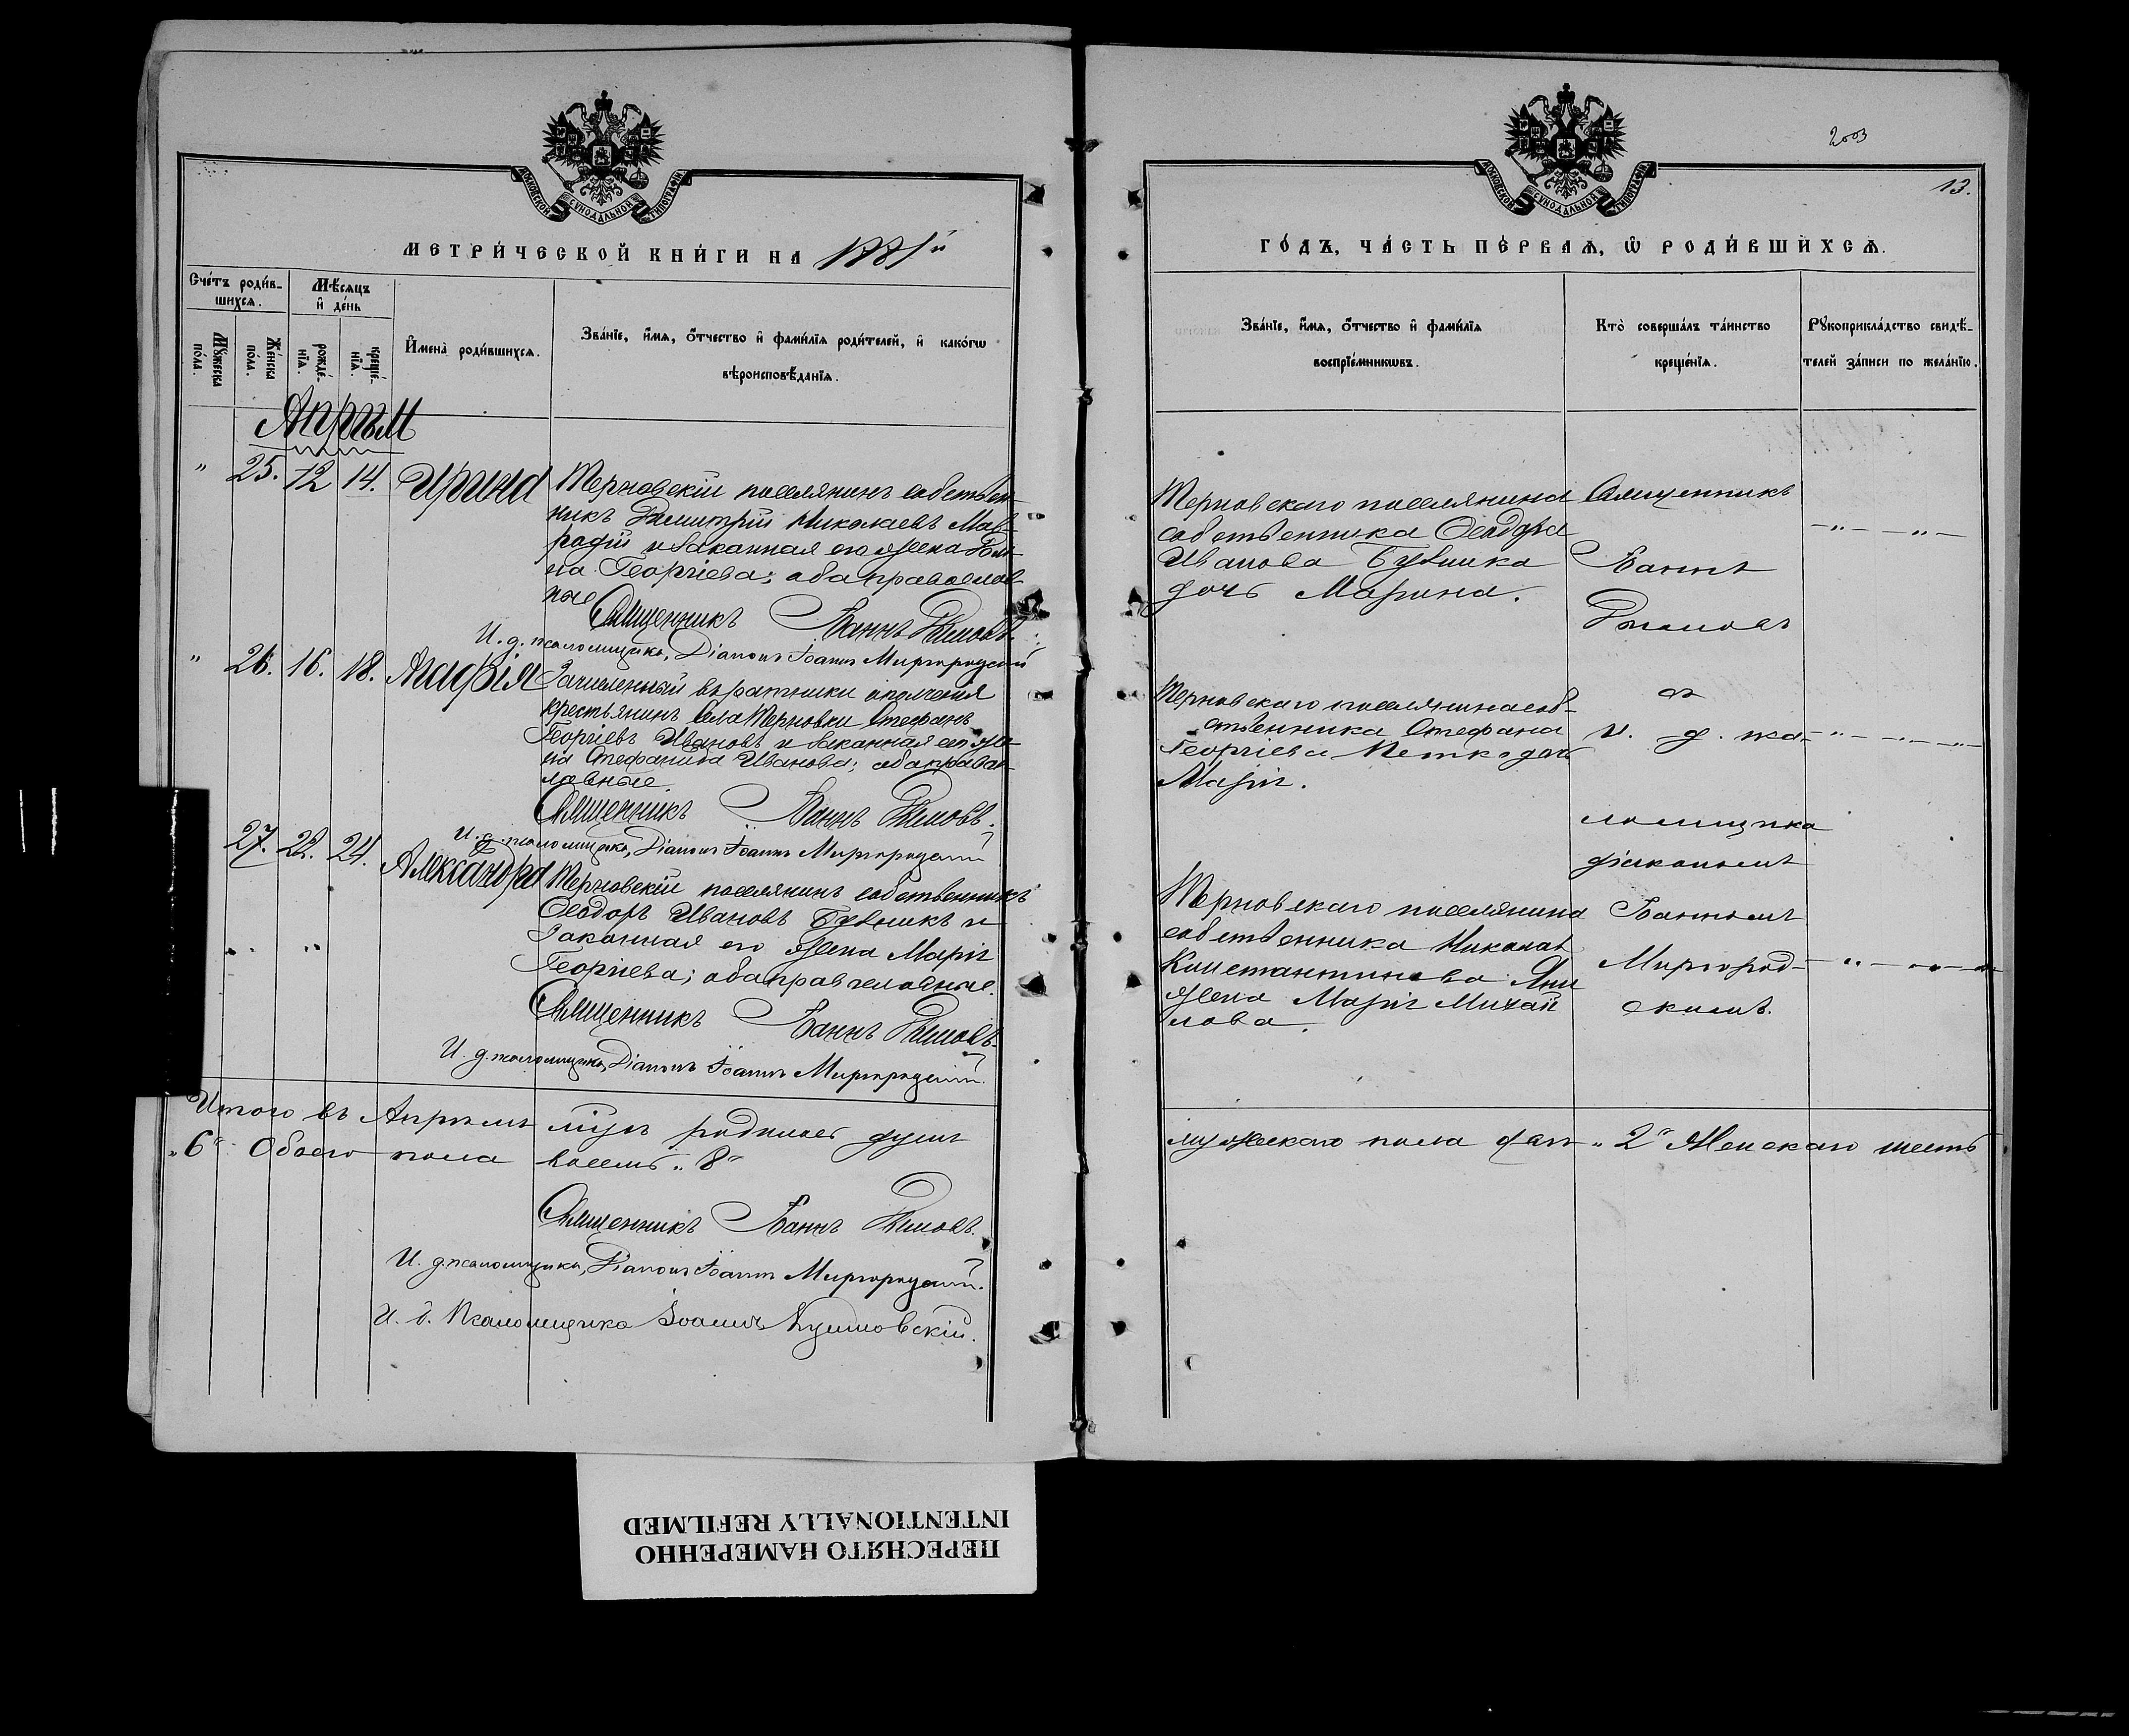 МОСКОВСКОЙ СѴНОДАЛЬНОЙ ТИПОГРАФІИ
МЕТРИ́ЧЕСКОЙ КНИ́ГИ НА 1881й
Сче́тъ роди́в-
шихсѧ.
Мѣ́сѧцъ
и҆ де́нь
Мꙋ́жеска
по́ла.
Же́нска
по́ла.
рожде́-
нїѧ.
креще́-
нїѧ.
И҆мена̀ роди́вшихсѧ.
Зва́нїе, и҆́мѧ, ѻ҆́тчество и҆ фами́лїѧ роди́телей, и҆ како́гѡ
вѣроисповѣ́данїѧ.
Апрѣль
" 25. 12 14. Ирина
Терновскій поселянинъ собствен-
никъ Димитрій Николаевъ Мав-
родій и законная его жена
на Георгіева; оба православ-
ные
Священникъ Іоаннъ
И. д. псаломщика, Діаконъ Іоаннъ Миргородскій
" 26. 16. 18. Агафія
Зачисленный въ ратники ополченія
крестьянинъ села Терновки Стефанъ
Георгіевъ Ивановъ и законная его же-
на Стефанида Иванова; оба право-
лавные.
Священникъ Іоаннъ
И. д. псаломщика, Діаконъ Іоаннъ Миргородскій
27. 22. 24. Александра
Терновскій поселянинъ собственникъ
Ѳеодоръ Ивановъ и
законная его жена Марія
Георгіева; оба православные.
Священникъ Іоаннъ
И. д. псаломщика, Діаконъ Іоаннъ Миргородскій.
Итого въ Апрѣлѣ м̃цѣ родилось душъ
"6" Обоего пола восемь "8"
Священникъ Іоаннъ
И. д. псаломщика, Діаконъ Іоаннъ Миргородскій.
И. д. Псаломщика Іоаннъ
203
13.
МОСКОВСКОЙ СѴНОДАЛЬНОЙ ТИПОГРАФІИ
ГО́ДЪ, ЧА́СТЬ ПЕ́РВАѦ, Ѽ РОДИ́ВШИХСѦ.
Зва́нїе, и҆́мѧ, ѻ҆́тчество и҆ фами́лїѧ
воспрїе́мникѡвъ.
Кто̀ соверша́лъ та́инство
креще́нїѧ.
Рꙋкоприкла́дство свидѣ́-
телей за́писи по жела́нїю.
Терновскаго поселянина
собственника Ѳеодора
Иванова
дочь Марина.
Священникъ
Іоаннъ
Терновскаго поселянина соб-
ственника Стефана
Георгіева Петк дочь
Марія.
съ
и. д. пса-
ломщика
діакономъ
Іоанномъ
Миргород-
скимъ.
Терновскаго поселянина
собственника Николая
Константинова
жена Марія Михай
лова.
мужескаго пола двѣ "2" Женскаго шесть
ПЕРЕСНЯТО НАМЕРЕННО
INTENTIONALLY REFILMED